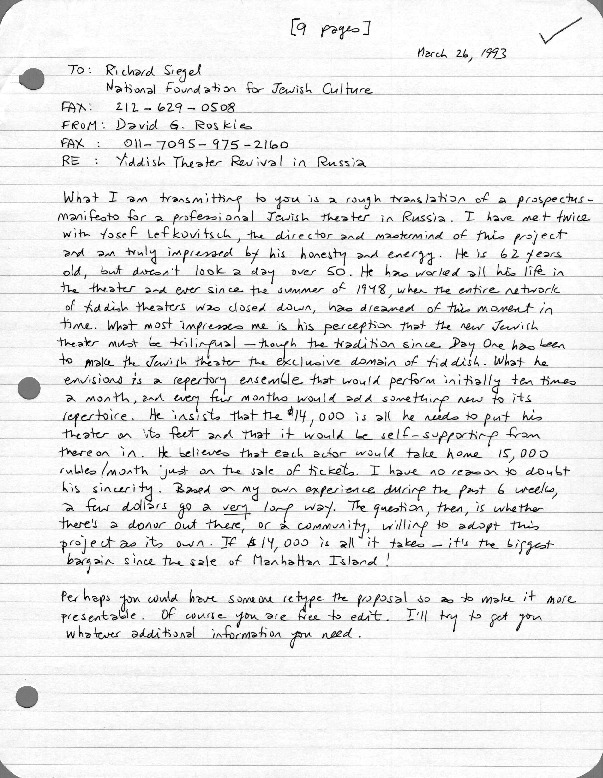 [9 pages]
March 26, 1993
TO: Richard Siegel
National Foundation for Jewish Culture
FAX: 212-629-0508
FROM: David G. Roskies
FAX : 011-7095-975-2160
RE : Yiddish Theater Revival in Russia
What I am transmitting to you is a rough translation of a prospectus-
manifesto for a professional Jewish theater in Russia. I have met twice
with Yosef Lefkovitsch, the director and mastermind of this project
and am truly impressed by his honesty and energy. He is 62 years
old, but doesn't look a day over 50. He has worked all his life in
the theater and ever since the summer of 1948, when the entire network
of Yiddish theaters was closed down, has dreamed of this moment in
time. What most impresses me is his perception that the new Jewish
theater must be trilingual — though the tradition since Day One has been
to make the Jewish theater the exclusive domain of Yiddish. What he
envisions is a repertory ensemble that would perform initially ten times
a month, and every few months would add something new to its
repertoire. He insists that the $14,000 is all he needs to put his
theater on its feet and that it would be self-supporting from
thereon in. He believes that each actor would take home 15,000
rubles/month just on the sale of tickets. I have no reason to doubt
his sincerity. Based on my own experience during the past 6 weeks,
a few dollars go a very long way. The question, then, is whether
there's a donor out there, or a community, willing to adopt this
project as its own. If $14,000 is all it takes — it's the biggest
bargain since the sale of Manhattan Island!
Perhaps you could have someone retype the proposal so as to make it more
presentable. Of course you are free to edit. I'll try to get you
whatever additional information you need.